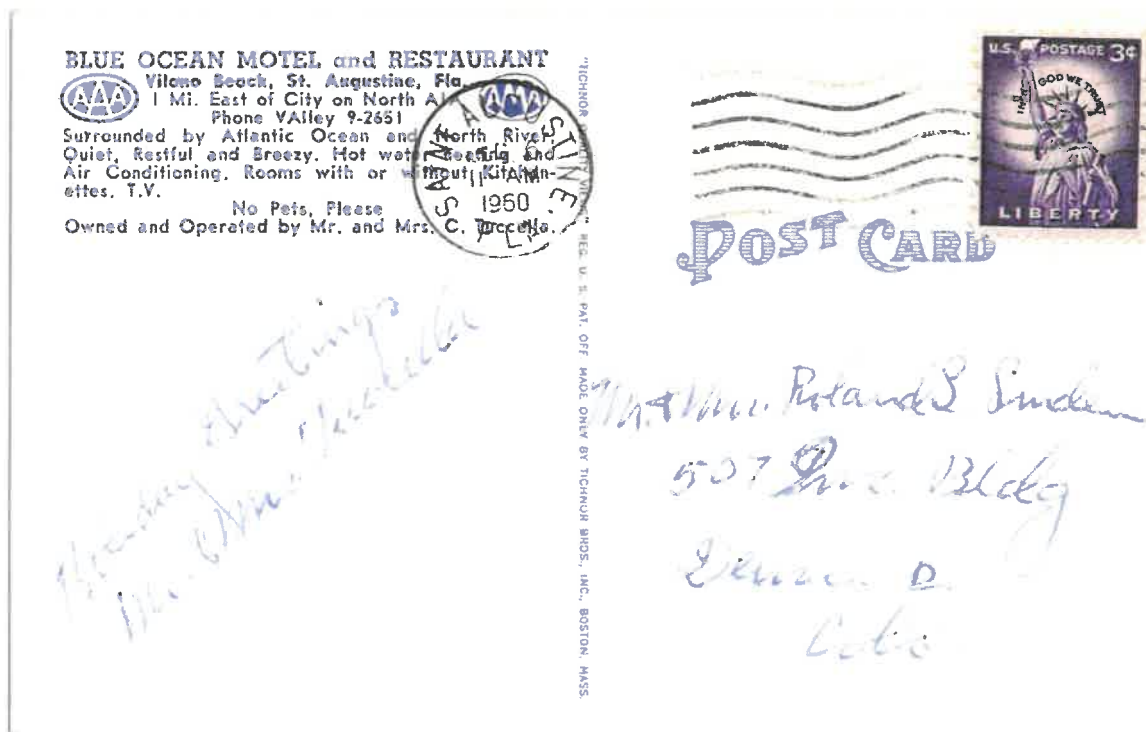 BLUE OCEAN MOTEL and RESTAURANT
Vilano Beach, St. Augustine, Fla.
AAA
1 Mi. East of City on North A1
AAA
Phone VAlley 9-2651
Surrounded by Atlantic Ocean and North River,
Quiet, Restful and Breezy. Hot water heating and
Air Conditioning. Rooms with or without Kitchen-
ettes. T.V.
No Pets, Please
Owned and Operated by Mr. and Mrs. C.
SAINT AUGUSTINE, FLA
AM
1960
Greetings
"TICHNOR QUALITY VIEWS," REG. U. S. PAT. OFF. MADE ONLY BY TICHNOR BROS., INC., BOSTON, MASS.
U.S. POSTAGE 3¢
IN GOD WE TRUST
LIBERTY
POST CARD
Mr & Mrs. Roland L
507 Bldg
Denver
Colo